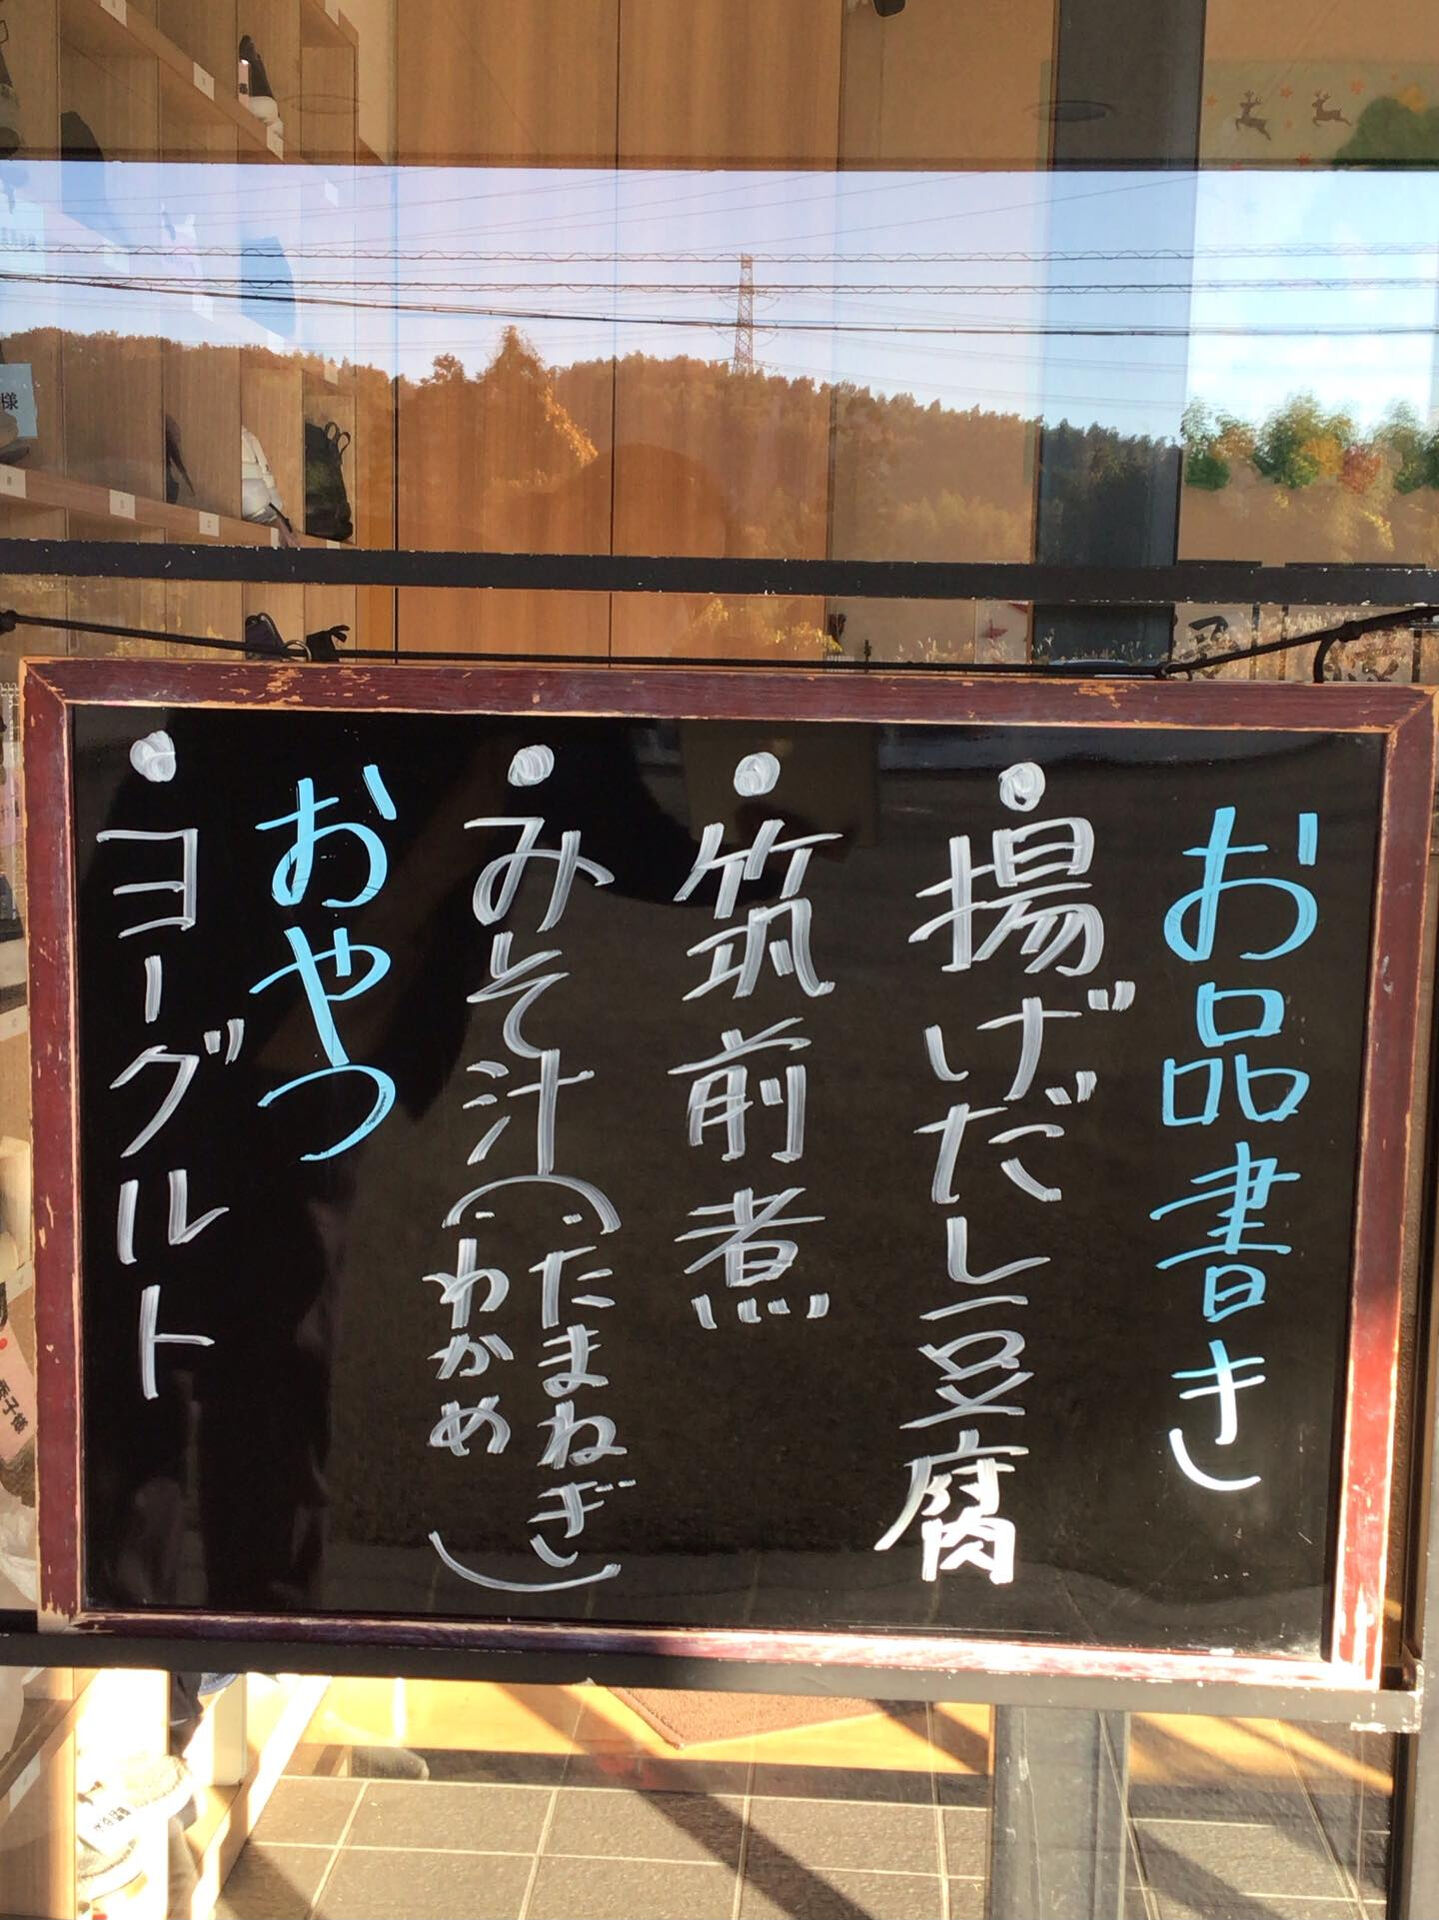 お品書き
揚げだし豆腐
筑前煮
みそ汁(・たまねぎ
・わかめ)
おやつ
ヨーグルト
様